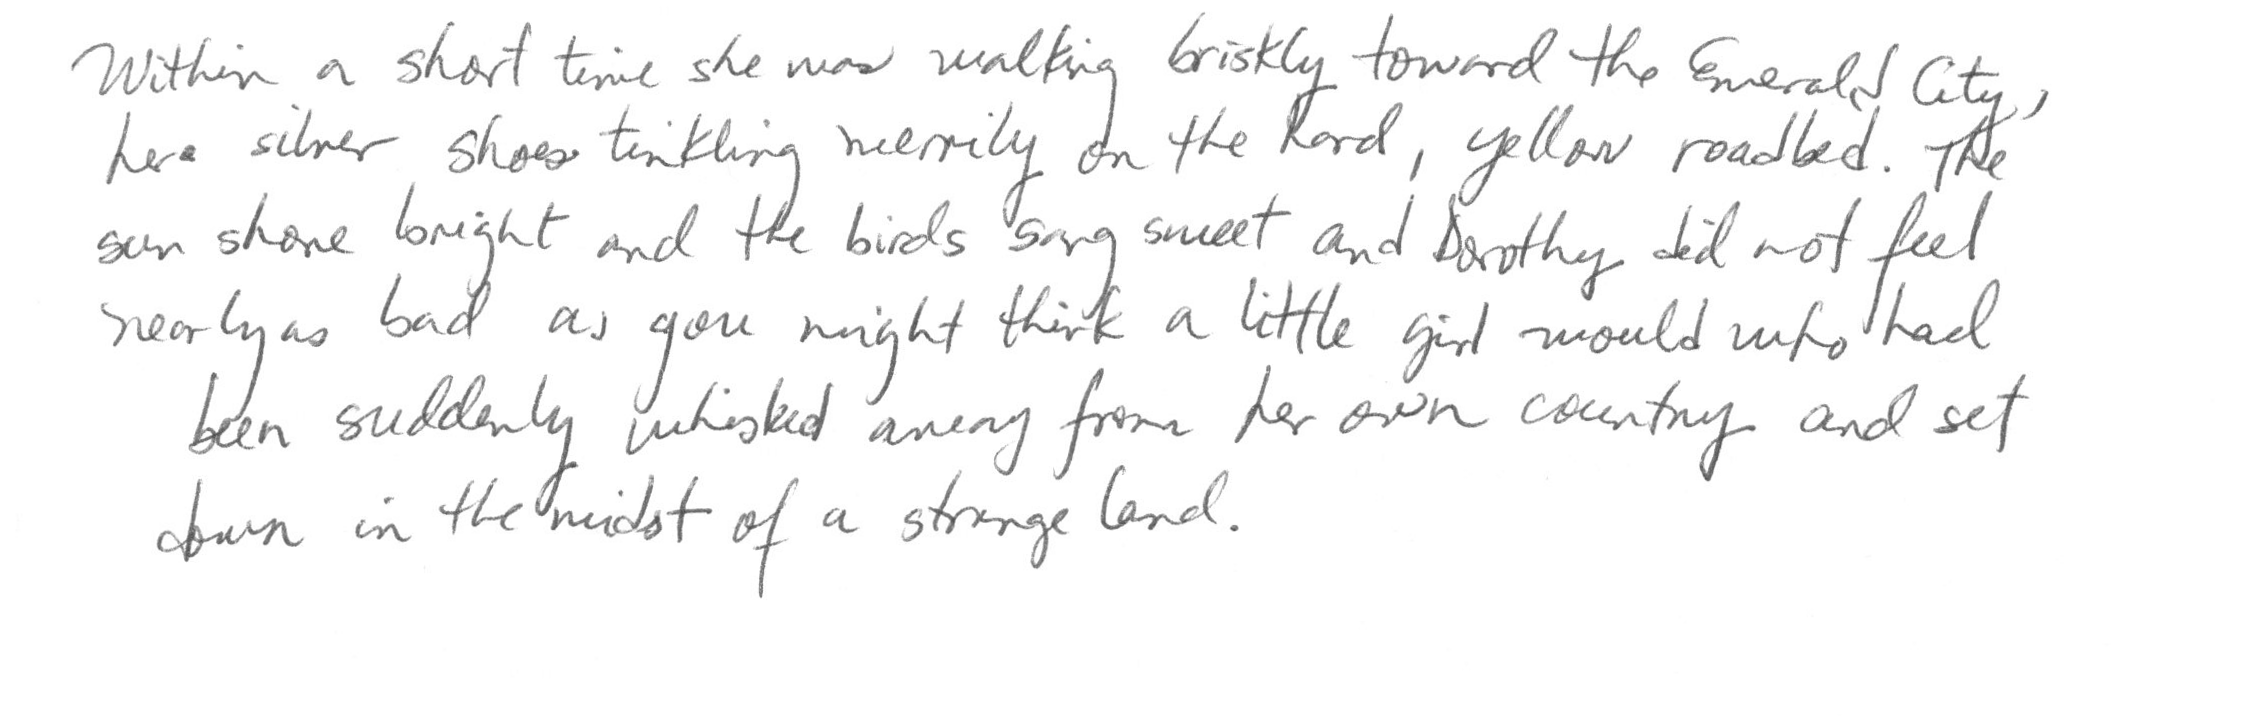 Within a short time she was walking briskly toward the Emerald City,
her silver shoes tinkling merrily on the hard, yellow roadbed. The
sun shone bright and the birds sang sweet and Dorothy did not feel
nearly as bad as you might think a little girl would who had
been suddenly whisked away from her own country and set
down in the midst of a strange land.